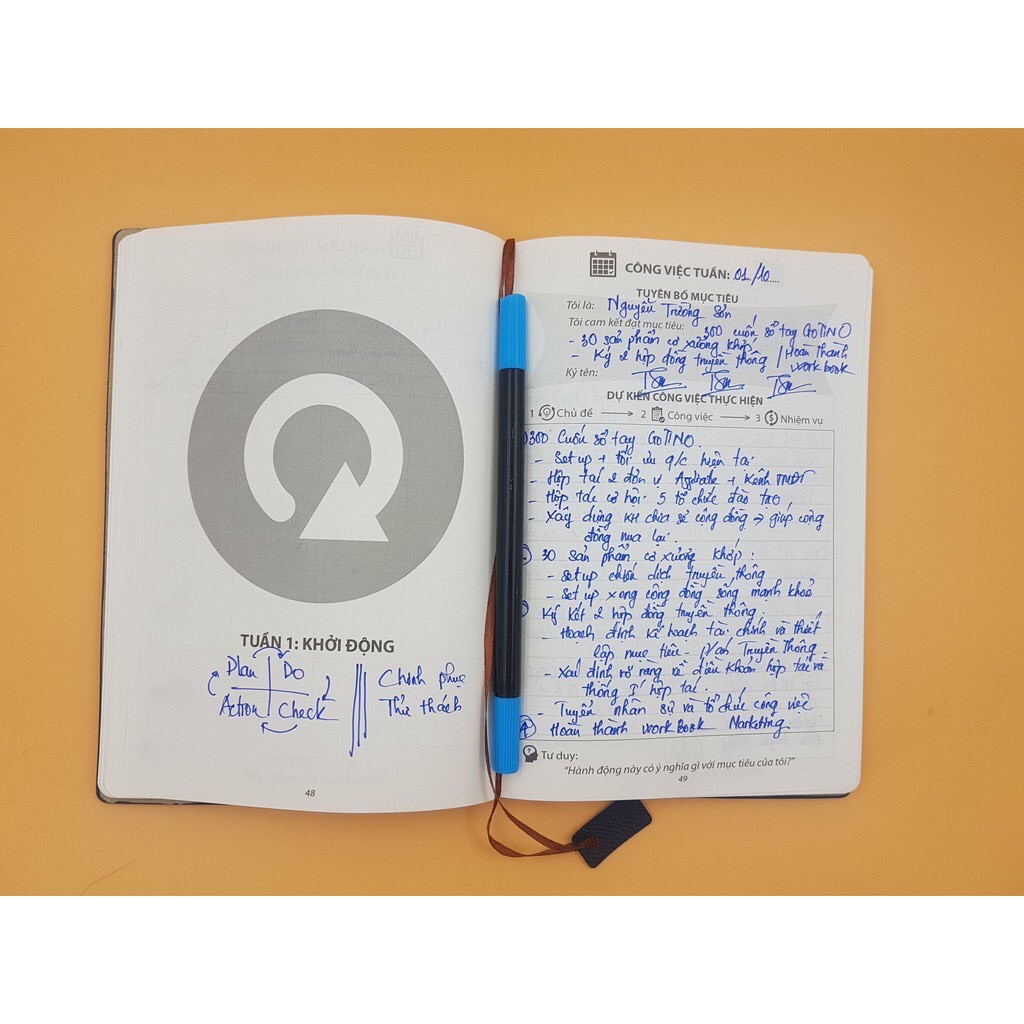 TUẦN 1: KHỞI ĐỘNG
Plan Do
Action Check
Chinh phục
Thử thách
48
CÔNG VIỆC TUẦN: 01/10....
TUYÊN BỐ MỤC TIÊU
Tôi là: Nguyễn Trường Sơn
Tôi cam kết đạt mục tiêu: 300 cuốn sổ tay GOTINO
- 30 sản phẩm cơ xương khớp
- Ký 2 hợp đồng truyền thông / Hoàn Thành
work book
Ký tên:
DỰ KIẾN CÔNG VIỆC THỰC HIỆN
1 Chủ đề → 2 Công việc → 3 $ Nhiệm vụ
300 Cuốn sổ tay GOTINO.
- Set up + tối ưu q/c hiện tại
- Hợp tác 2 đơn vị + Kênh TMĐT
- Hợp tác cơ hội 5 tổ chức đào tạo
- Xây dựng KH chia sẻ cộng đồng → giúp cộng
đồng mua lại.
30 sản phẩm cơ xương khớp:
- Set up chiến dịch truyền thông
- Set up xong cộng đồng sống mạnh khoẻ
Ký kết 2 hợp đồng truyền thông.
- Hoạch định kế hoạch tài chính và thiết
lập mục tiêu - Truyền Thông.
- Xác định rõ ràng về điều khoản hợp tác và
thống hợp tác.
- Tuyển nhân sự và tổ chức công việc
4 Hoàn thành work Book Marketing
Tư duy:
"Hành động này có ý nghĩa gì với mục tiêu của tôi?"
49